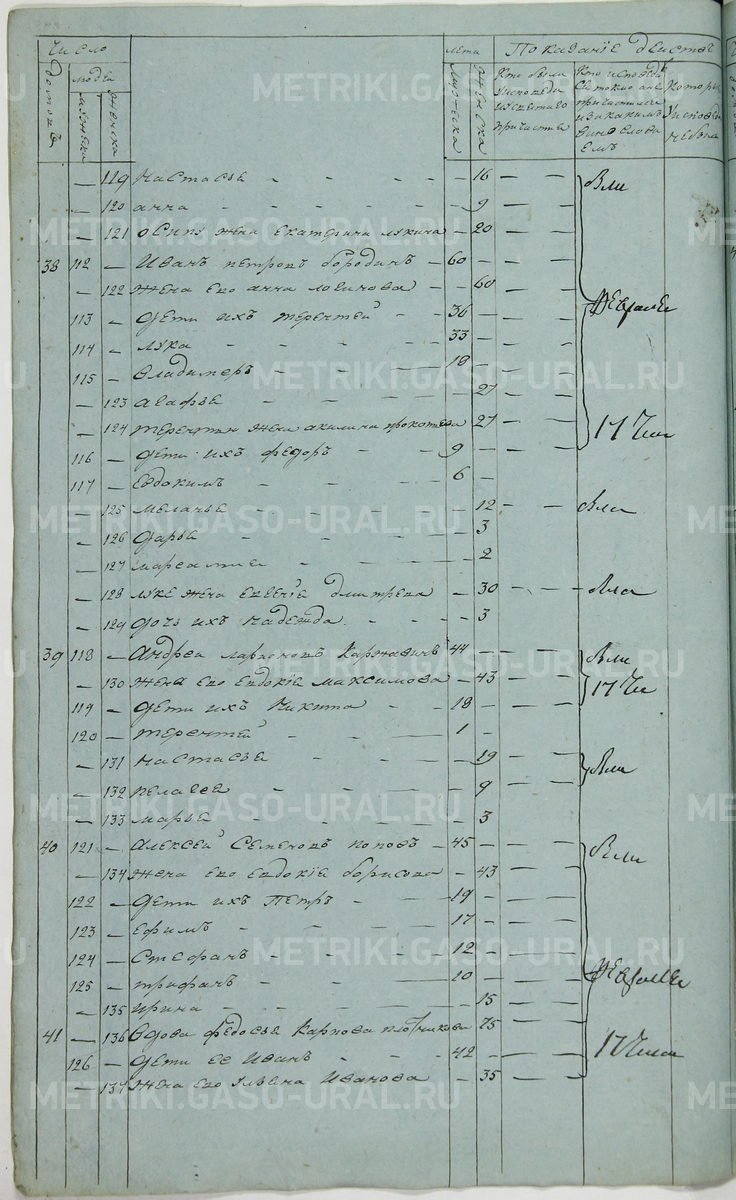 Число лета Показание действ
домовъ людей мужеска женска мужеска женска
Кто были у исповеди и святаго причастия
Кто исповед
причаст
и за какимъ винословіемъ
Которые у исповеди небыли
— 119 настасья — — 16 — — Были
— 120 анна — — 9 — —
— 121 осипу жена екатерина лукина — 20 — —
38 112 — Иванъ петровъ бородинъ — 60 — —
— 122 жена ево анна логинова — 60 — —
113 — дети ихъ терентей — 36 — — Февраля
114 — лука — 33 — —
115 — владимеръ — 18 — —
— 123 агафья — 27 — —
— 124 терентья жена акилина прокопьева — 27 — — 17 Числ
116 — дети ихъ федоръ — 9 — —
117 — евдокимъ — 6 —
— 125 меланья — 12 — — Были
— 126 дарья — 3
— 127 — 2
— 128 луке жена евгеніе дмитрева — 30 — — Была
— 129 дочь ихъ надежда — 3
39 118 — Андреа ларионовъ Каржавинъ 44 — — Были
— 130 жена ево евдокіе максимова — 43 — — 17 Чи
119 — дети ихъ Никита — 18 — —
120 — терентей — 1 —
— 131 настасья — 19 — — Были
— 132 пелагея — 9 — —
— 133 марья — 3
40 121 — Алексей Семеновъ поповъ — 45 — — Были
— 134 жена ево евдокіе борисова — 43 — —
122 — дети ихъ Петръ — 19 — —
123 — ефимъ — 17 — —
124 — Стефанъ — 12 — —
125 — трифанъ — 10 — — Февраля
— 135 ирина — 15 — —
41 — 136 вдова федосья Карпова плотникова 75 — —
126 — дети ее Иванъ — 42 — — 17 Числа
— 137 жена ево ульена Иванова — 35 — —
METRIKI.GASO-URAL.RU